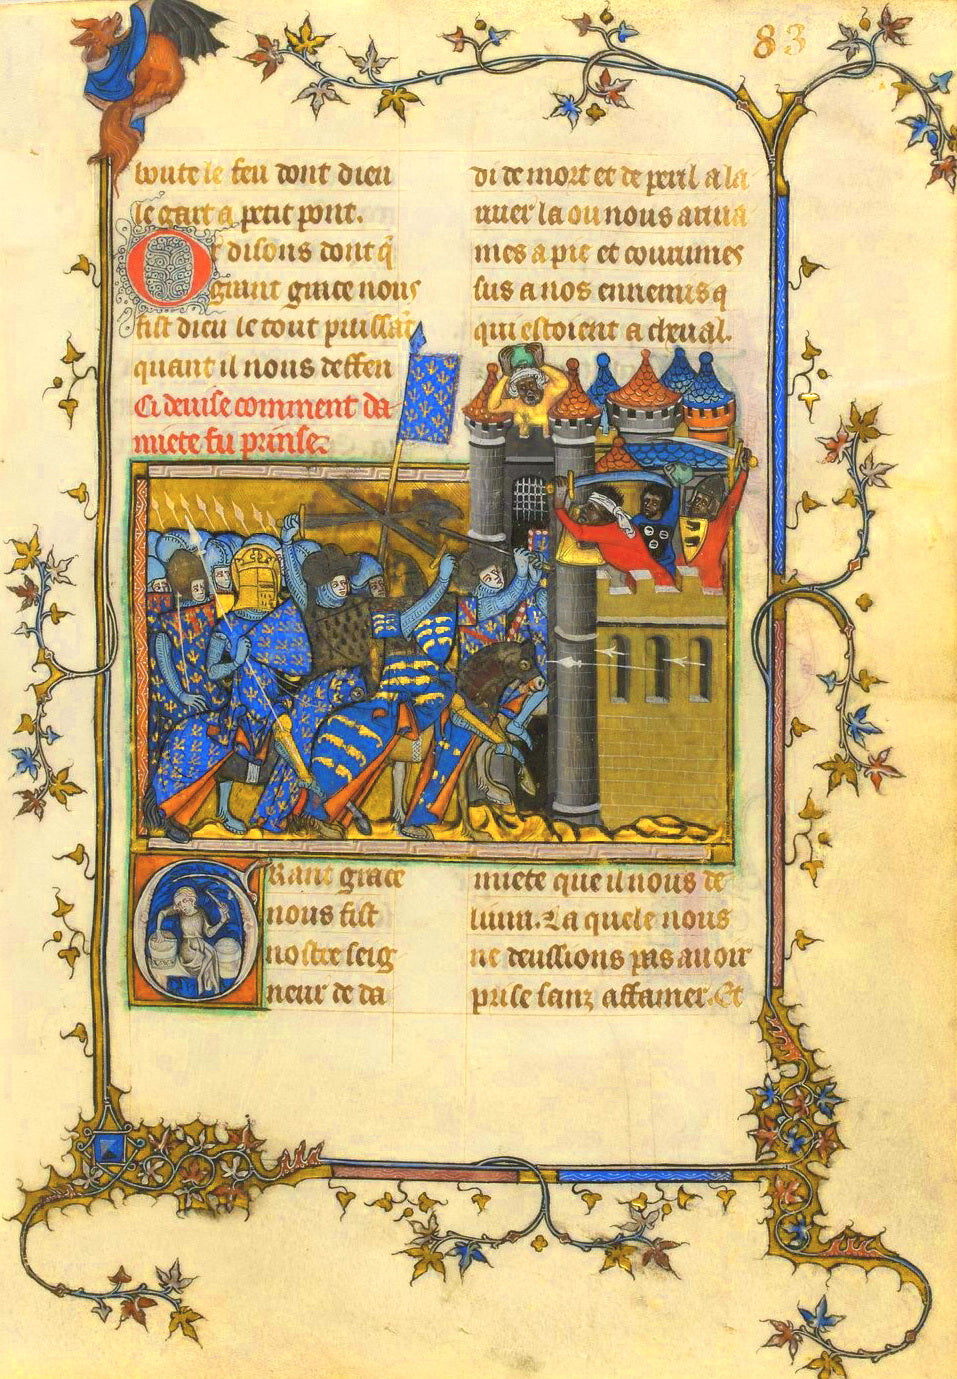 83
boute le feu dont dieu
le gart a petit pont.
Or disons dont q̃
grant grace nous
fist dieu le tout puissãt
quant il nous deffen
Ci deuise comment da
miete fu prinse
Grant grace
nous fist
nostre seig
neur de da
di de mort et de peril a la
riuer la ou nous arriua
mes a pie et courumes
sus a nos ennemis q
qui estoient a cheual.
miete que il nous de
liura. La quele nous
ne deussions pas auoir
prise sanz affamer. Et